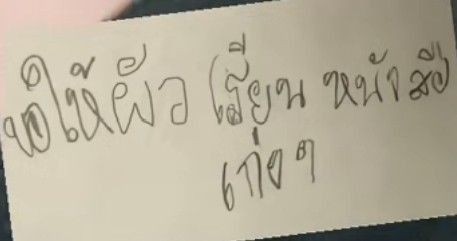 ขอให้ผัว เรียน หนังสือ
เก่งๆ